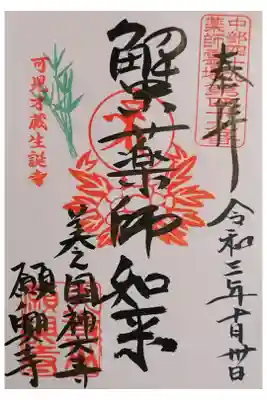 中部四十九
薬師霊場
奉拝
令和三年十月卅日
蟹薬師如来
美之国
願興寺
可児才蔵生誕寺